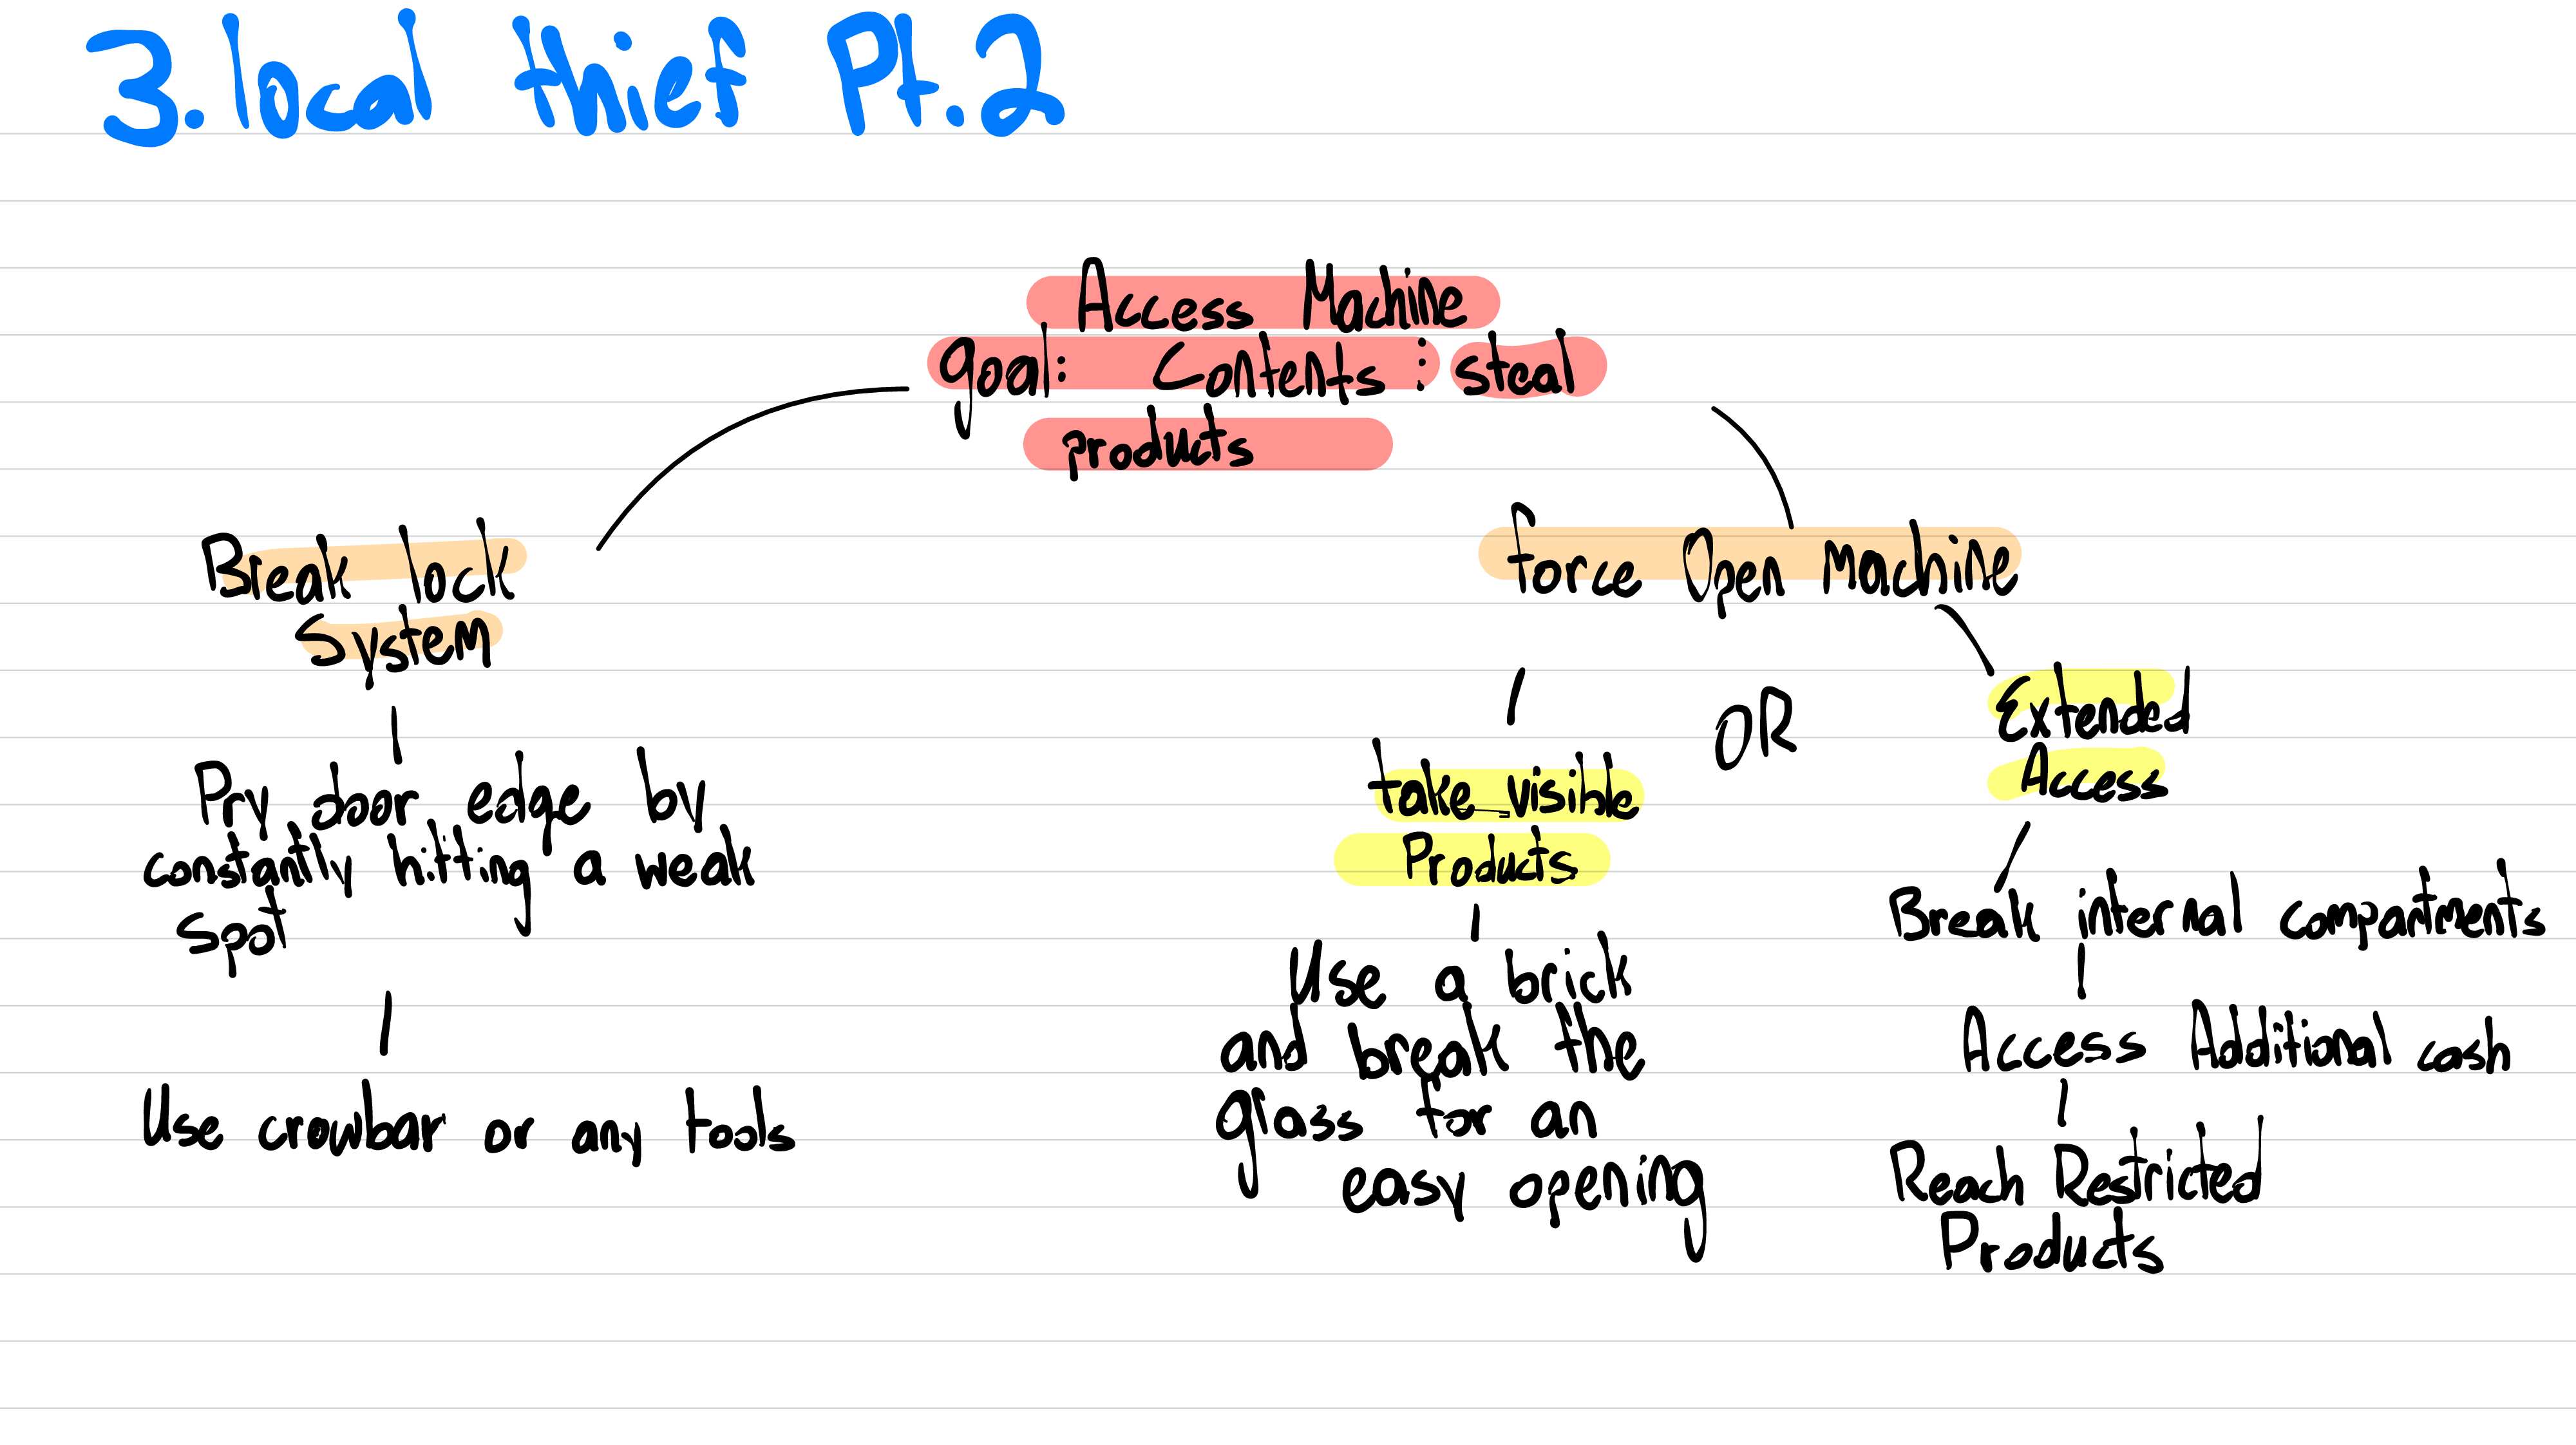 3. local thief Pt.2
Access Machine
goal: Contents : steal
products
Break lock
System
Pry door edge by
constantly hitting a weak
spot
Use crowbar or any tools
force Open Machine
OR
take visible
Products
Use a brick
and break the
glass for an
easy opening
Extended
Access
Break internal compartments
Access Additional cash
Reach Restricted
Products